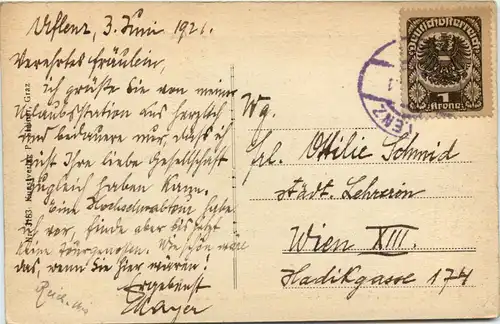 Aflenz, 3. Juni 1921.
Verehrtes Fräulein,
ich grüße Sie von meiner
Urlaubsstation aus herzlich
und bedauere nur, dass ich
nicht Ihre liebe Gesellschaft
zugleich haben kann.
Eine Hochschwabtour habe
ich vor, finde aber bis jetzt
keine Tourgenossen. Wie schön wäre
das, wenn Sie hier wären!
Ergebenst
Mayer
Deutschösterreich
1
Krone
ENZ
Wg.
Frl. Ottilie Schmid
städt. Lehrerin
Wien XIII.
Hadikgasse 174
Graz